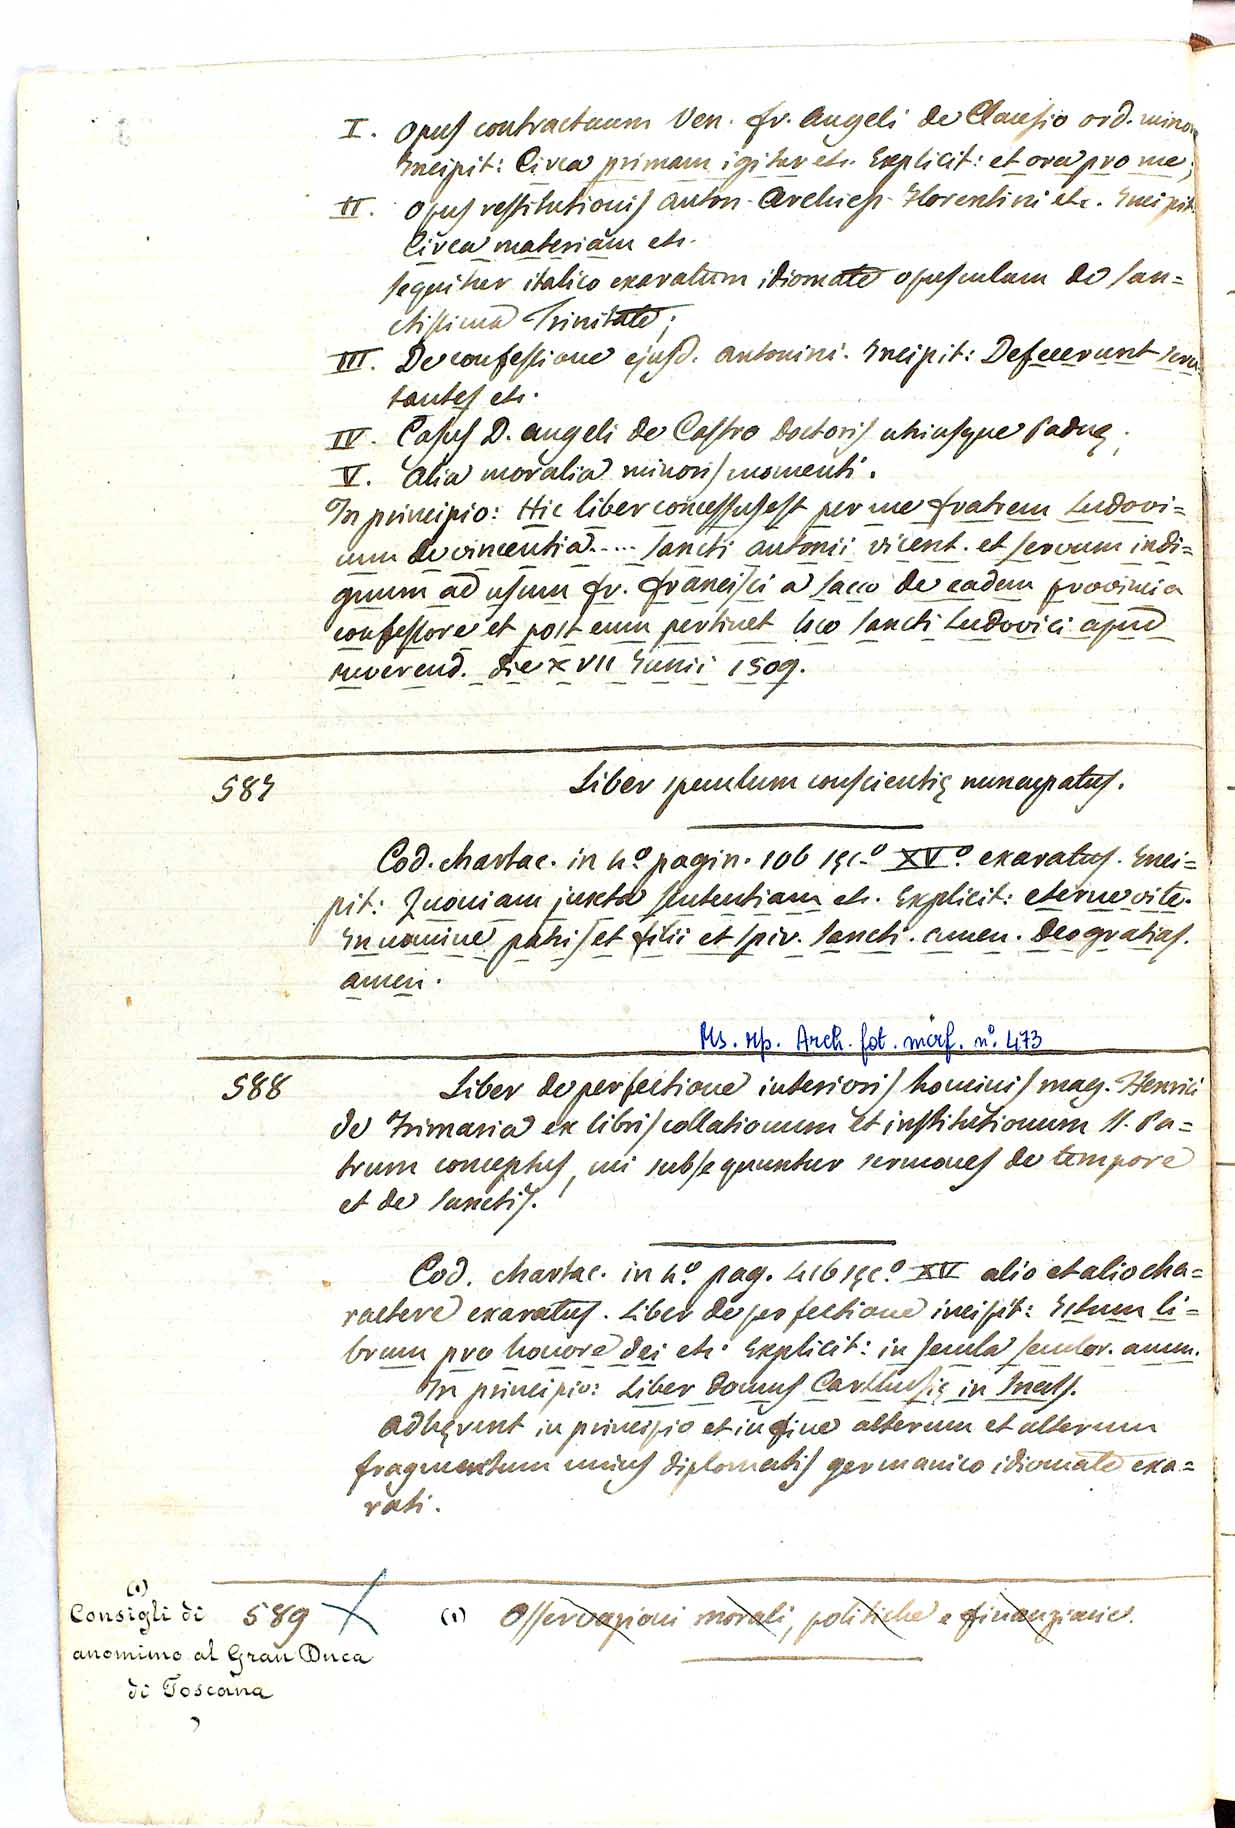 I. Opus contractuum Ven. fr. Angeli de Clausio ord. minor
Incipit: Circa primam igitur etc. Explicit: et ora pro me;
II. Opus restitutionis Anton. Archiep. Florentini etc. Incipit
Circa materiam etc.
sequitur italico exaratum idiomate opusculum de San=
ctissima Trinitate;
III. De confessione ejusd. Antonini. Incipit: Defecerunt scru
tantes etc.
IV. Casus D. Angeli de Castro doctoris utriusque Paduę;
V. Alia moralia minoris momenti.
In principio: Hic liber concessus est per me fratrem Ludovi=
cum de vincentia..... sancti Antonii vicent. et servum indi=
gnum ad usum fr. francisci a Sacco de eadem provincia
confessore et post eum pertinet loco sancti Ludovici apud
reverend. die XVII Iunii 1509.
587
Liber speculum conscientię nuncupatus.
Cod. chartac. in 4.º pagin. 106 sęc.º XVº. exaratus. Inci=
pit: Quoniam juxta sententiam etc. Explicit: eterne vite.
In nomine patris et filii et spir. sancti. amen. Deo gratias.
amen.
Ms. rip. Arch. fot. micrf. nº. 473
588
Liber de perfectione interioris hominis mag. Henrici
de Frimaria ex libris collationum et institutionum SS. Pa=
trum conceptus, cui subsequuntur sermones de tempore
et de Sanctis.
Cod. chartac. in 4.º pag. 416 sęc.º XV alio et alio cha=
ractere exaratus. Liber de perfectione incipit: Istum li=
brum pro honore dei etc. Explicit: in secula seculor. amen.
In principio: Liber domus Carthusię in Snals.
Adhęrent in principio et in fine alterum et alterum
fragmentum unius diplomatis germanico idiomate exa=
rati.
589 (1) Osservazioni morali, politiche e finanziarie.
(1)
Consigli di
anonimo al Gran Duca
di Toscana